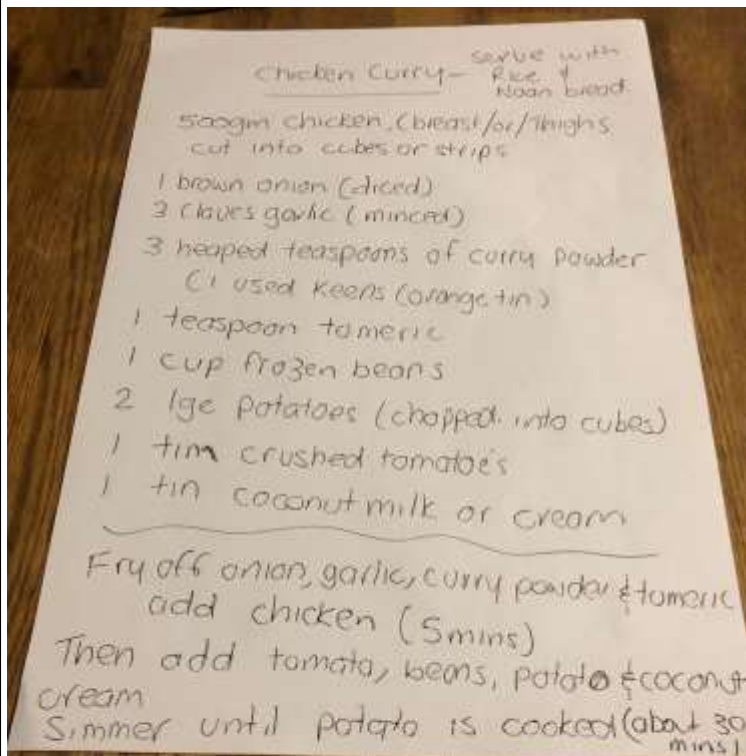 Chicken Curry - serve with
Rice &
Naan bread.
500gm chicken, (breast/or/thighs
cut into cubes or strips
1 brown onion (diced)
3 claves garlic (minced)
3 heaped teaspoons of curry powder
(I used Keens (orange tin)
1 teaspoon tumeric
1 cup frozen beans
2 lge potatoes (chopped into cubes)
1 tim crushed tomatoe's
1 tin coconut milk or cream
Fry off onion, garlic, curry powder & tumeric
add chicken (5mins)
Then add tomato, beans, potato & coconut
cream
Simmer until potato is cooked (about 30
mins)